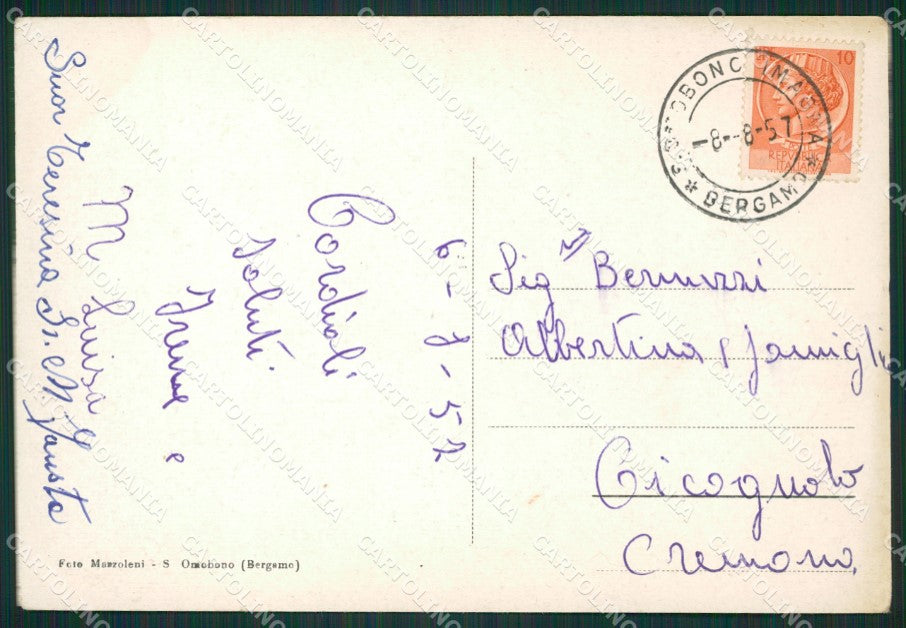 Suor Teresina Sr. M. Fausta
M Luisa
Irene e
Saluti
Cordiali
6-7-57
Sig Bernuzzi
Albertina e famiglia
Cicognolo
Cremona
-8.-8-57
BERGAMO
10
REPVBBLICA
ITALIANA
Foto Mazzoleni - S Omobono (Bergamo)
CARTOLINOMANIA